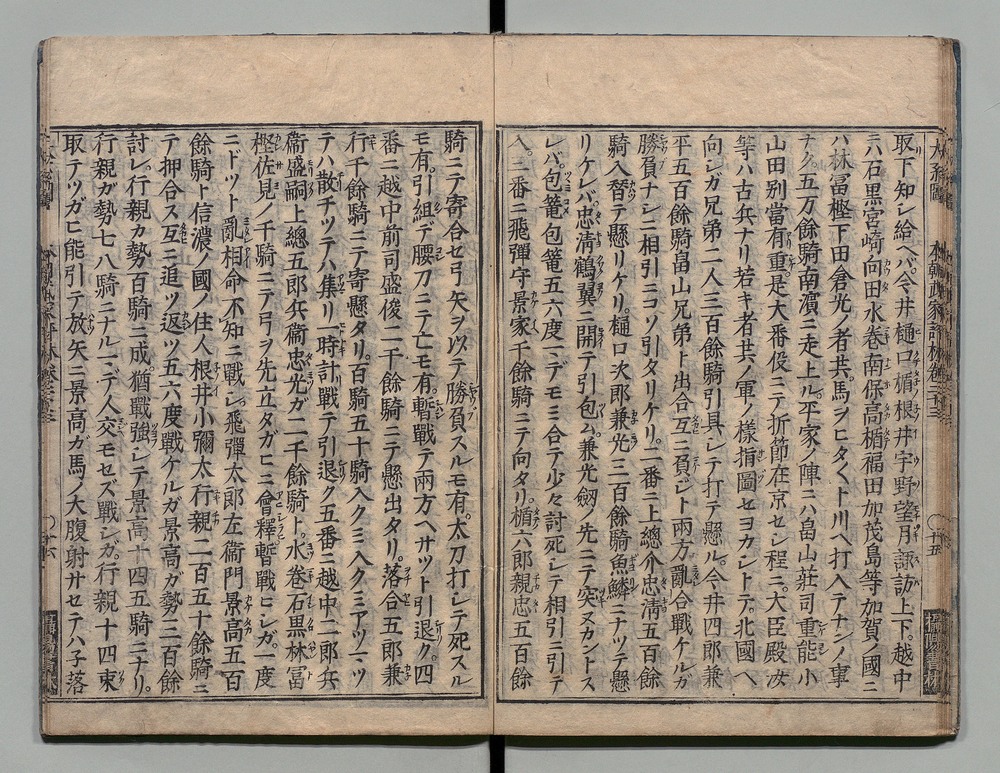 取下知シ給ヘバ。今井樋口楯根井宇野望月諏訪上下。越中
ニハ石黒宮﨑向田水巻南保高楯福田加茂島等加賀ノ國ニ
ハ林冨樫下田倉光ノ者共。馬ヲヒタ〱ト川ヘ打入テナンノ事
ナク。五万餘騎南濵ニ走上ル。平家ノ陣ニハ畠山莊司重能小
山田別當有重。是大番役ニテ折節在京セシ程ニ。大臣殿汝
等ハ古兵ナリ若キ者共ノ軍ノ樣指圖セヨカシトテ。北國ヘ
向シガ兄弟二人三百餘騎引具シテ打テ懸ル。今井四郎兼
平五百餘騎畠山兄弟ト出合互ニ負ジト兩方。亂合戰ケルガ
勝負ナシニ相引ニコソ引タリケリ。二番ニ上總介忠清五百餘
騎入替テ懸リケリ。樋口次郎兼光三百餘騎魚鱗ニナツテ懸
リケレバ。忠清鶴翼ニ開テ引包ム。兼光劔ノ先ニテ突ヌカントス
レバ。包篭包篭五六度マデモミ合テ少々討死シテ相引ニ引テ
入。三番ニ飛彈守景家千餘騎ニテ向タリ。楯六郎親忠五百餘
騎ニテ寄合セ弓矢ヲ以テ勝負スルモ有。太刀打シテ死スル
モ有。引組デ腰刀ニテ亡モ有。暫戰テ兩方ヘサツト引退ク。四
番ニ越中前司盛俊二千餘騎ニテ懸出タリ。落合五郎兼
行千餘騎ニテ寄懸タリ。百騎五十騎入クミ入クミアツマツ
テハ散チツテハ集リ一時計戰テ引退ク五番ニ越中二郎兵
衞盛嗣上總五郎兵衞忠光ガ二千餘騎ト。水巻石黒林冨
樫佐見ノ千騎ニテ弓ヲ先立タガヒニ會釋暫戰ヒシガ。一度
ニドツト亂相命不知ニ戰シ。飛彈太郎左衞門景高五百
餘騎ト信濃ノ國ノ住人根井小彌太行親二百五十餘騎ニ
テ押合ス互ニ追ツ返ツ五六度戰ケルガ景高ガ勢三百餘
討レ。行親カ勢百騎ニ成。猶戰強シテ景高十四五騎ニナリ。
行親ガ勢七八騎ニナルマデ人交モセズ戰シガ。行親十四束
取テツガヒ能引テ放ツ矢ニ景高ガ馬ノ大腹射サセテハ子落